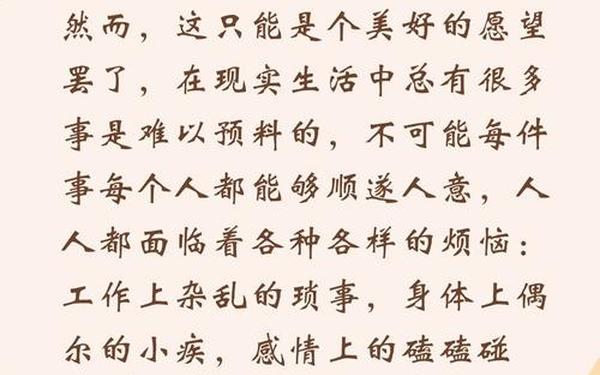 然而，这只能是个美好的愿望
罢了，在现实生活中总有很多
事是难以预料的，不可能每件
事每个人都能够顺遂人意，人
人都面临着各种各样的烦恼：
工作上杂乱的琐事，身体上偶
尔的小疾，感情上的磕磕碰